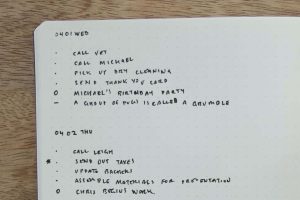 04.01 WED
· CALL VET
· CALL MICHAEL
· PICK UP DRY CLEANING
· SEND THANK YOU CARD
O MICHAEL'S BIRTHDAY PARTY
– A GROUP OF PUGS IS CALLED A GRUMBLE
04.02 THU
· CALL LEIGH
* · SEND OUT TAXES
· UPDATE BACKERS
· ASSEMBLE MATERIALS FOR PRESENTATION
O CHRIS BEGINS WORK